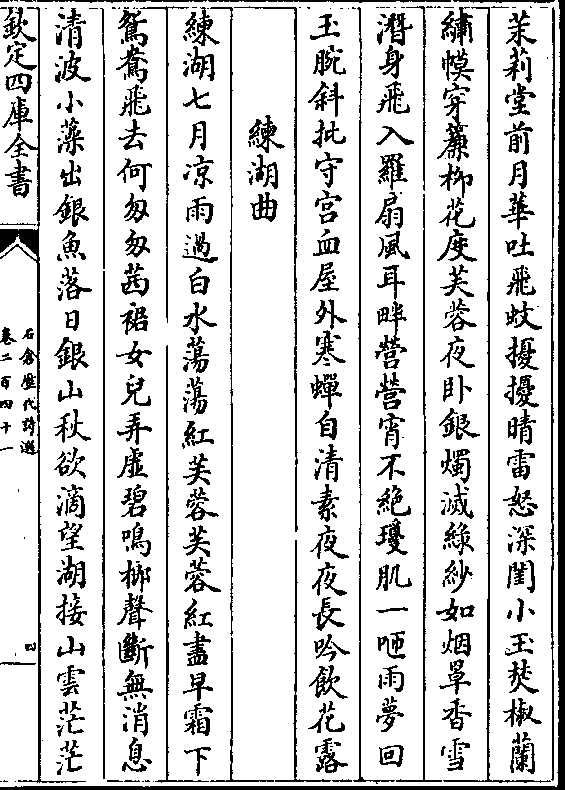 茉莉堂前月華吐飛蚊擾擾晴雷怒深閨小玉焚椒蘭
繡幙穿簾栁花度芙蓉夜卧銀燭滅緑紗如烟罩香雪
潛身飛入羅扇風耳畔營營宵不絶瓊肌一咂雨夢回
玉腕斜批守宫血屋外寒蟬自清素夜夜長吟飲花露
練湖曲
練湖七月凉雨過白水蕩蕩紅芙蓉芙蓉紅盡早霜下
鴛鴦飛去何匆匆茜裙女兒弄虚碧鳴榔聲斷無消息
清波小藻出銀魚落日銀山秋欲滴望湖接山雲茫茫
欽定四庫全書
石倉歴代詩選
卷二百四十一
四